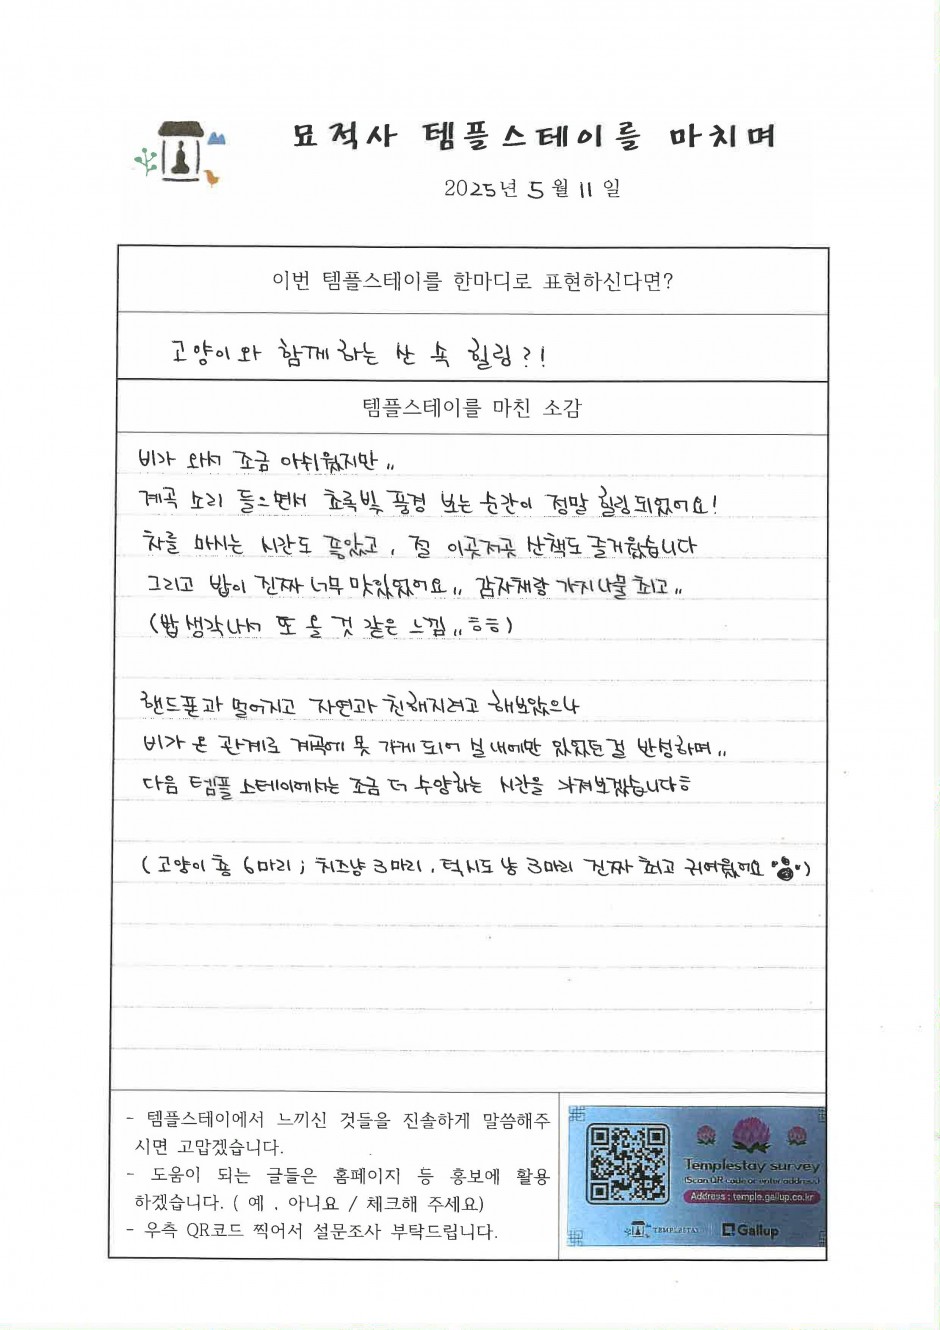 묘적사 템플스테이를 마치며
2025년 5월 11일
이번 템플스테이를 한마디로 표현하신다면?
고양이와 함께하는 산 속 힐링?!
템플스테이를 마친 소감
비가 와서 조금 아쉬웠지만,,
계곡 소리 들으면서 초록빛 풍경 보는 순간이 정말 힐링되었어요!
차를 마시는 시간도 좋았고, 절 이곳저곳 산책도 즐거웠습니다
그리고 밥이 진짜 너무 맛있었어요,, 감자채랑 가지나물 최고,,
(밥 생각나서 또 올 것 같은 느낌,,ㅎㅎ)
핸드폰과 멀어지고 자연과 친해지려고 해보았으나
비가 온 관계로 계곡에 못 가게 되어 실내에만 있었던 걸 반성하며,,
다음 템플스테이에서는 조금 더 수양하는 시간을 가져보겠습니다ㅎ
(고양이 총 6마리; 치즈냥 3마리, 턱시도 냥 3마리 진짜 최고 귀여웠어요)
- 템플스테이에서 느끼신 것들을 진솔하게 말씀해주
시면 고맙겠습니다.
- 도움이 되는 글들은 홈페이지 등 홍보에 활용
하겠습니다. ( 예 , 아니요 / 체크해 주세요)
- 우측 QR코드 찍어서 설문조사 부탁드립니다.
Templestay survey
(Scan QR code or enter address)
Address : temple.gallup.co.kr
TEMPLESTAY
Gallup